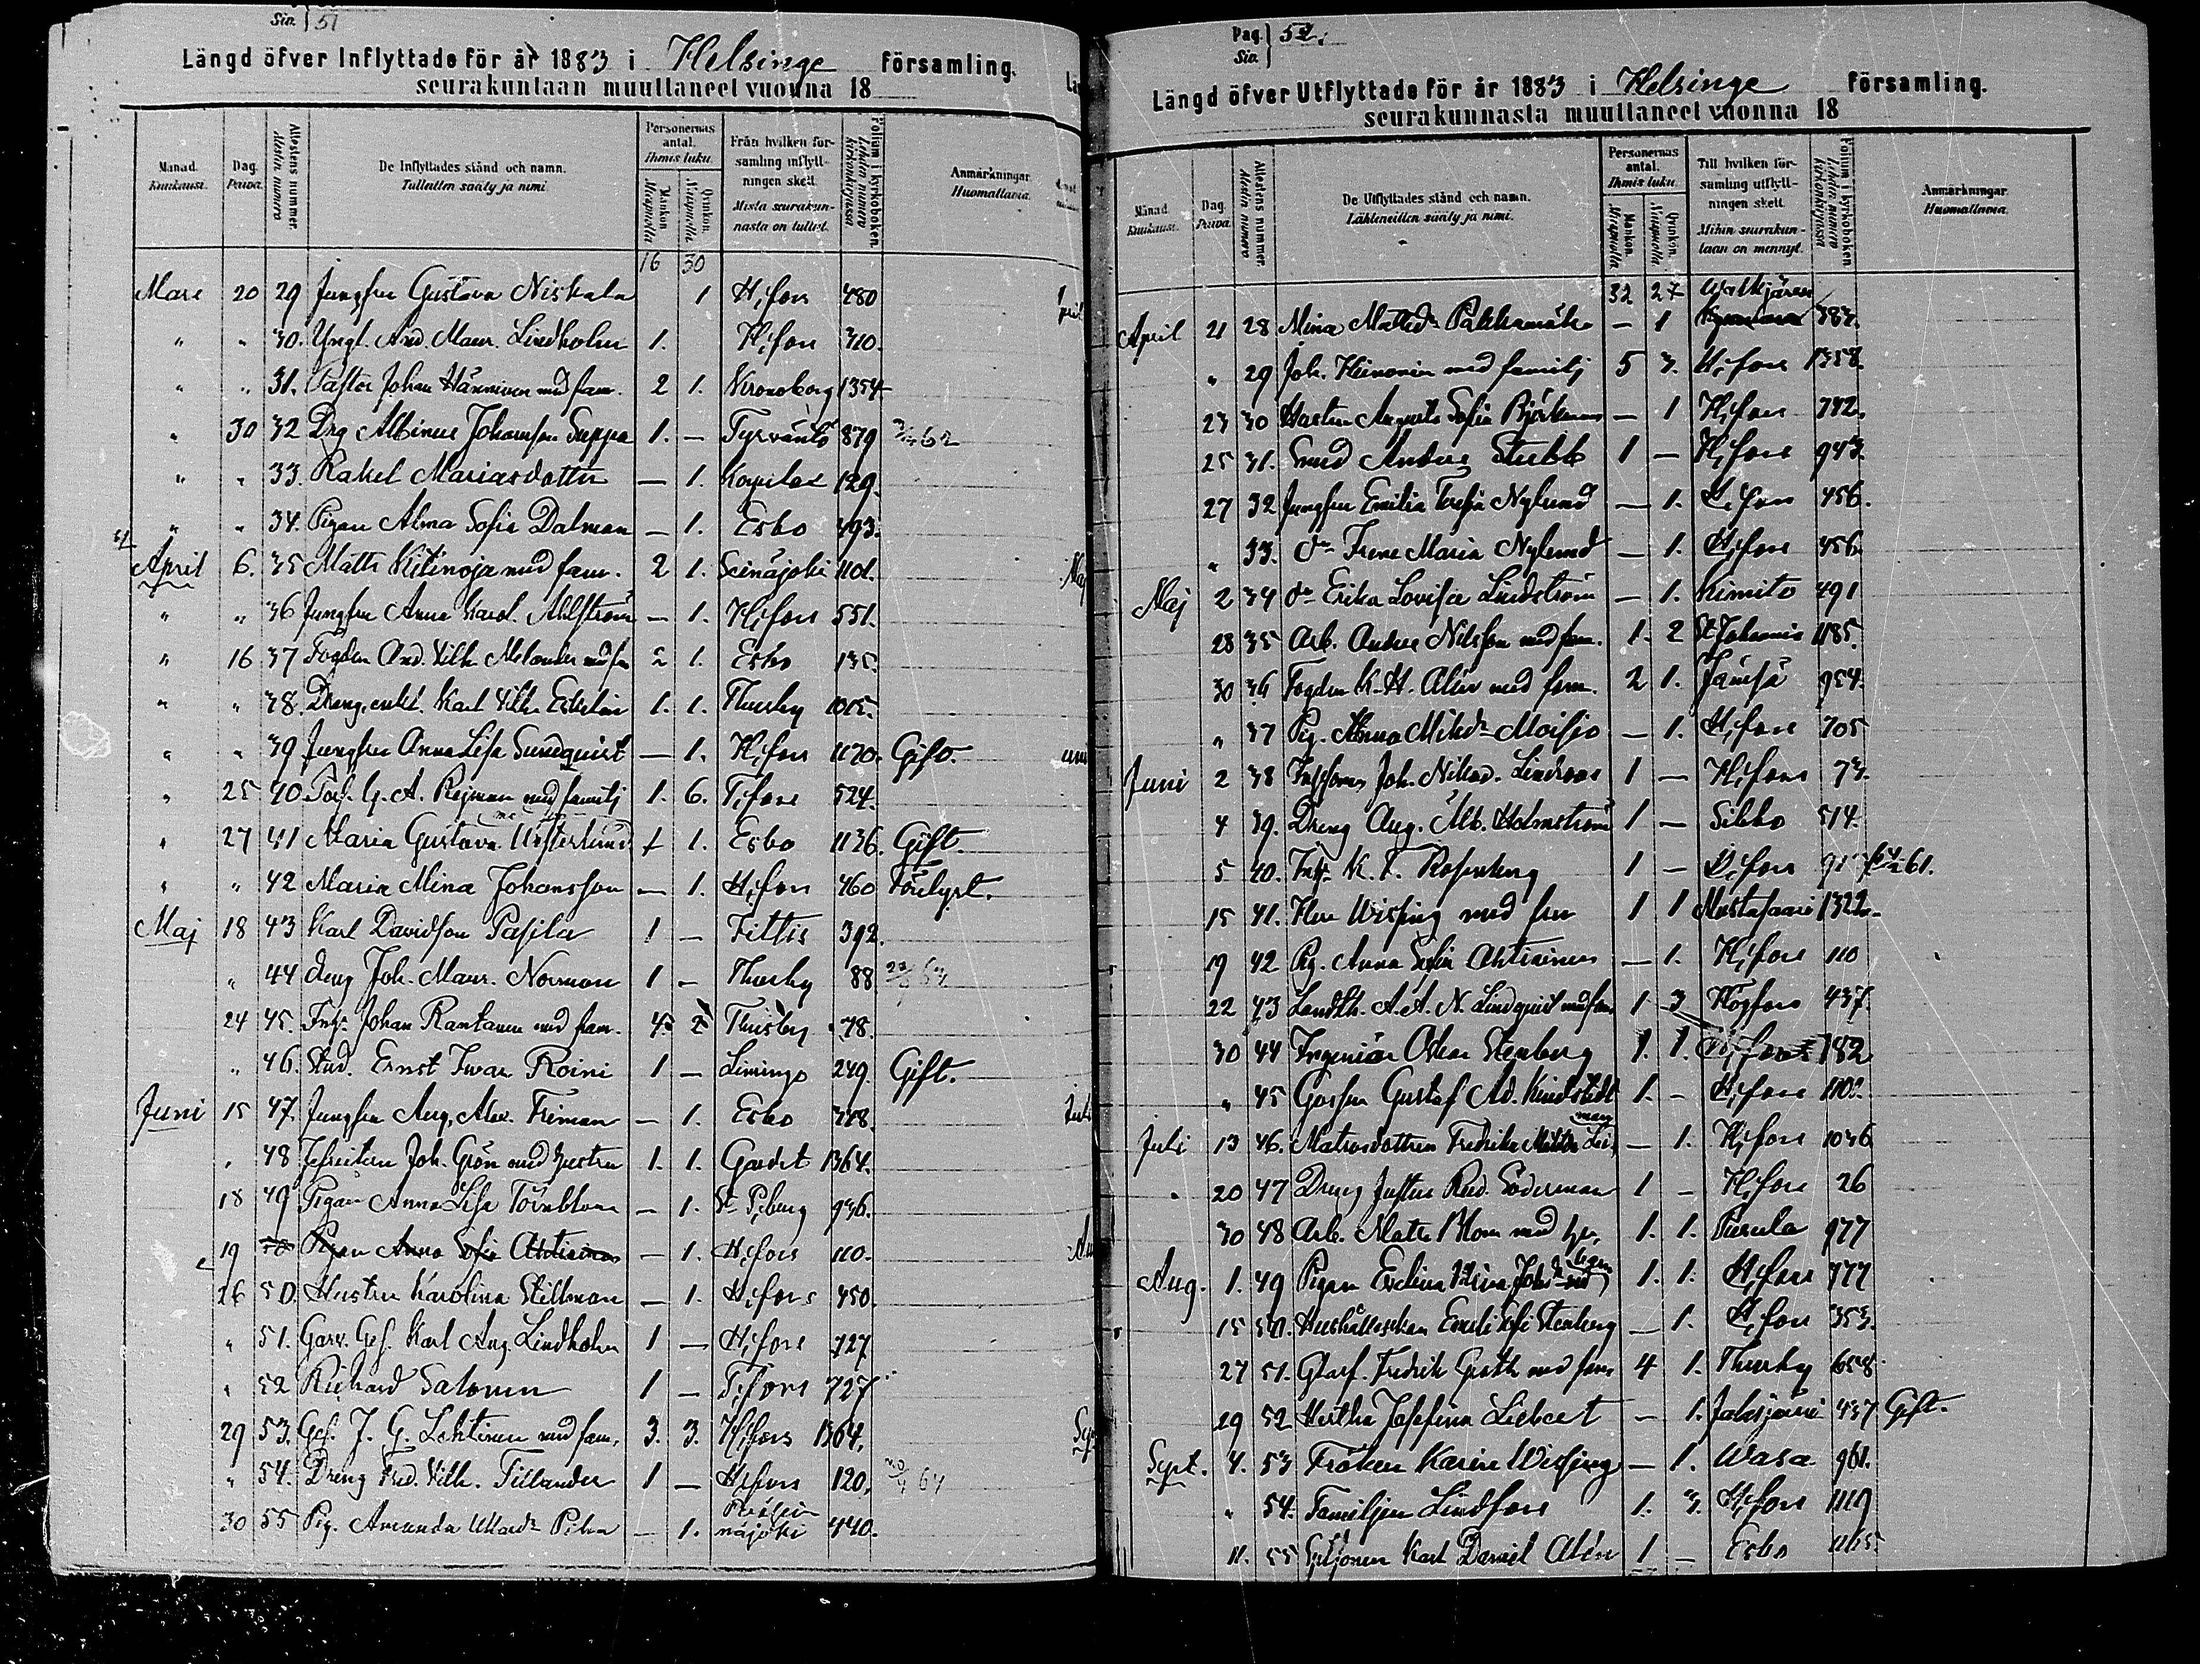 Siv. 51
Längd öfver Inflyttade för år 1883 i Helsinge församling.
seurakuntaan muuttaneet vuonna 18
Månad. Kuukausi.
Dag. Päivä.
Attestens nummer. Attestin numero
De Inflyttades stånd och namn. Tulletten sääty ja nimi.
Personernas antal. Ihmis luku.
Mankön. Miespuolia
Qvinkön. Naispuolia
Från hvilken församling inflyttningen skett. Mistä seurakunnasta on tullut.
Folium i kyrkoboken. Lehden numero kirkonkirjassa
Anmärkningar. Huomattavia.
16 30
Mars 20 29 Jungfru Gustava Niskala 1 H,fors 480
" " 30. Yngl. And. Maur. Lindholm 1. H,fors 310.
" " 31. Pastor Johan Hänninen med fam. 2 1. Kronoborg 1354
" 30 32 Drg Albinus Johansson Seppä 1. — Tyrväntö 879
" " 33. Rakel Mariasdotter — 1. 129.
" " 34. Pigan Alma Sofia Dalman — 1. Esbo 393.
April 6. 35 Matts Kitinoja med fam. 2 1. Seinäjoki 1101.
" " 36 Jungfru Anna Karol. Ahlström — 1. H,fors 551.
" 16 37 Fogden And. Vilh. Melander med fm 2 1. Esbo 135.
" " 38. Dreng enkl. Karl Vilh. Ekholm 1. 1. Thusby 1005.
" " 39 Jungfru Anna Lisa Sundquist — 1. H,fors 1170. Gift.
" 25 40. Torp. G. A. Rejman med familj 1. 6. T,fors 524.
" 27 41 Maria Gustava Westerlund 1. Esbo 1136. Gift.
" " 42 Maria Mina Johansson — 1. H,fors 460 Förlyst.
Maj 18 43 Karl Davidson Pasila 1 — Fittis 392.
" 44 dreng Joh. Maur. Norman 1 — Thusby 88
24 45. Johan Rantanen med fam. Thusby 78.
" 46. Stud. Ernst Ivar Roini 1 — Limingo 249. Gift.
Juni 15 47. Jungfru Aug. Alex. Friman — 1. Esbo 348.
" 48 Joh. Grön med hustru 1. 1. Gardet 1364.
18 49 Pigan Anna Lisa Törnblom — 1. St Pburg 936.
19 50 Pigan Anna Sofia Ahtiainen — 1. H,fors 110.
26 50. Hustru Karolina Stillman — 1. H,fors 450.
" 51. Garv. Ges. Karl Aug. Lindholm 1 — H,fors 727
" 52 Richard Salonen 1 — T,fors 727
29 53. Ges. J. G. Lehtinen med fam. 3. 3. H,fors 1364.
" 54. Dreng Fred. Vilh. Tillander 1 — H,fors 120.
30 55 Pig. Amanda — 1. Peräseinäjoki 440.
Pag. Siv. 52.
Längd öfver Utflyttade för år 1883 i Helsinge församling.
seurakunnasta muuttaneet vuonna 18
Månad. Kuukausi.
Dag. Päivä.
Attestens nummer. Attestin numero
De Utflyttades stånd och namn. Lähteneitten sääty ja nimi.
Personernas antal. Ihmis luku.
Mankön. Miespuolia
Qvinkön. Naispuolia
Till hvilken församling utflyttningen skett. Mihin seurakuntaan on mennyt.
Folium i kyrkoboken. Lehden numero kirkonkirjassa
Anmärkningar. Huomattavia.
32 27 Walkjärvi
April 21 28 Mina Mattsdr Pakkamäki — 1 383.
" 29 Joh. Heinonen med familj 5 3. H,fors 1358.
23 30 Hustru Augusta Sofia Björkman — 1 H,fors 782.
25 31. Smed Anders Stubb 1 — H,fors 943.
27 32 Jungfru Emilia Josefa Nylund — 1. H,fors 456.
" 33. dr Irene Maria Nylund — 1. H,fors 456
Maj 2 34 dr Erika Lovisa Lindström — 1. Kimito 491
28 35 Arb. Anders Nilsson med fam. 1. 2 St Johannis 1185.
30 36 Fogden K. H. Alén med fam. 2 1. Jämsä 954.
" 37 Pig. Anna Mikdr Moisio — 1. H,fors 705
Juni 2 38 Joh. Nikod. Lindroos 1 — H,fors 73.
4 39. Dreng Aug. Alb. Holmström 1 — Sibbo 514.
5 40. K. F. Rosenberg 1 — H,fors
15 41. Herr Wissing med fru 1 1 Mustasaari 1322.
19 42 Pig. Anna Sofia Ahtiainen — 1. H,fors 110
22 43 Landth. A. A. N. Lindquist med fam 1 3 Högfors 437.
30 44 Ingeniör Oskar Stenberg 1. 1. H,fors 182
" 45 Gossen Gustaf Ad. Kindstedt 1. — H,fors 1102.
Juli 13 46. Matrosdottren Fredrika — 1. H,fors 1046
" 20 47 Dreng Justus Rud. Söderman 1 — H,fors 26
30 48 Arb. Matts Blom med hu. 1. 1. Pusula 977
Aug. 1. 49 Pigan Evelina 1. 1. H,fors 777
15 50. Hushållerskan Emili Sofi Stenberg — 1. H,fors 353.
27 51. Fredrik Groth med fam 4 1. Thusby 658.
29 52 Hertha Josefina Liebert — 1. Jalasjärvi 437 Gift.
Sept. 4. 53 Fröken Karin Wissing — 1. Wasa 961.
" 54. Familjen Lindfors 1. 3. H,fors 1119
11. 55 Karl Daniel Alén 1 — Esbo 1165.